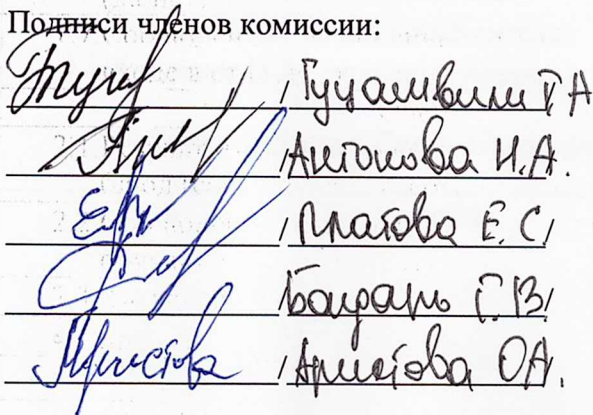 Подписи членов комиссии:
/ Гуцашвили Т А
/ Антонова Н.А.
/ Платова Е.С/
/ Г.В/
Аристова / Аристова О.А.